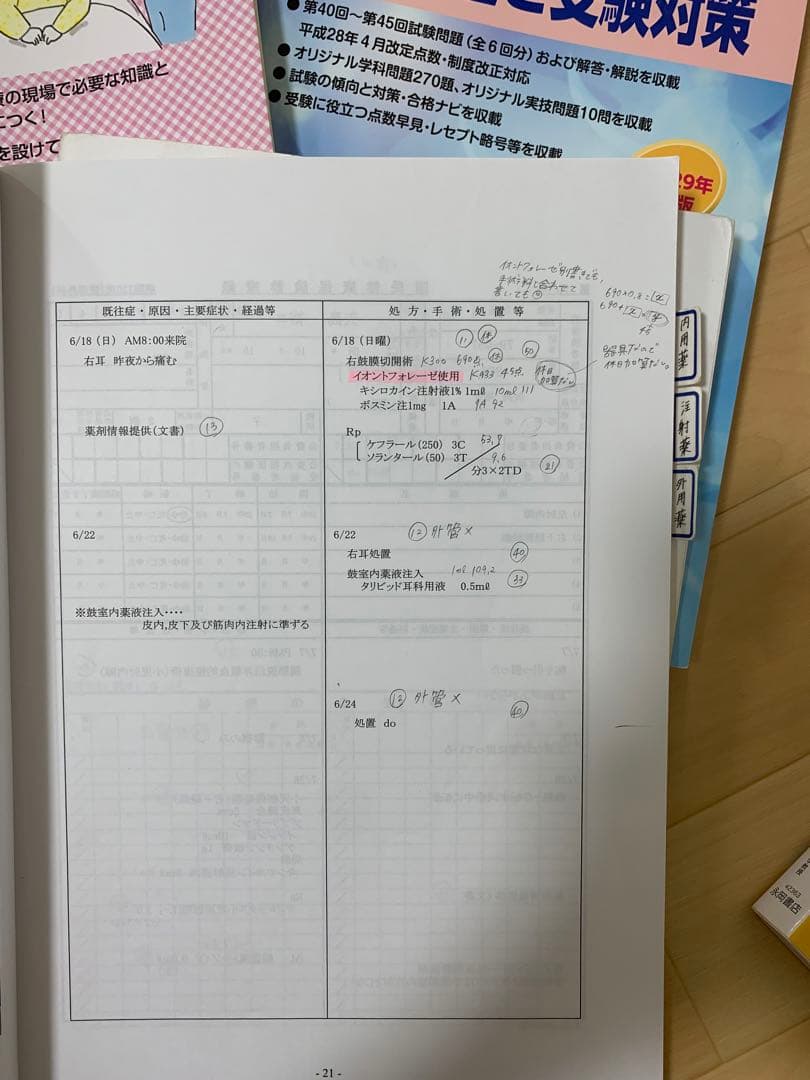 の現場で必要な知識と
につく!
を設けて
と受験対策
●第40回～第45回試験問題（全6回分）および解答・解説を収載
平成28年4月改定点数・制度改正対応
●オリジナル学科問題270題、オリジナル実技問題10問を収載
●試験の傾向と対策・合格ナビを収載
●受験に役立つ点数早見・レセプト略号等を収載
29年
版
イオントフォレーゼ別書きでも、
手術料と合わせて
書いても
690×0.8=
既往症・原因・主要症状・経過等
処方・手術・処置等
6/18（日）AM8:00来院
右耳 昨夜から痛む
薬剤情報提供(文書) ⑬
6/18（日曜） ⑪ 休
右鼓膜切開術 K300 690点 休 ㊿
イオントフォレーゼ使用 K933 45点
休日
加算なし
器具なので
休日加算なし。
キシロカイン注射液1% 1mℓ 10ml 111
ボスミン注1mg 1A 1A 92
Rp
ケフラール(250) 3C 53.9
ソランタール(50) 3T 9.6
分3×2TD ㉑
6/22
6/22 ⑫ 外管×
右耳処置 ㊵
鼓室内薬液注入 1ml 109.2 ㉝
タリビッド耳科用液 0.5mℓ
※鼓室内薬液注入‥‥
皮内,皮下及び筋肉内注射に準ずる
6/24 ⑫ 外管×
処置 do ㊵
- 21 -
内用薬
注射薬
外用薬
42363
永岡書店